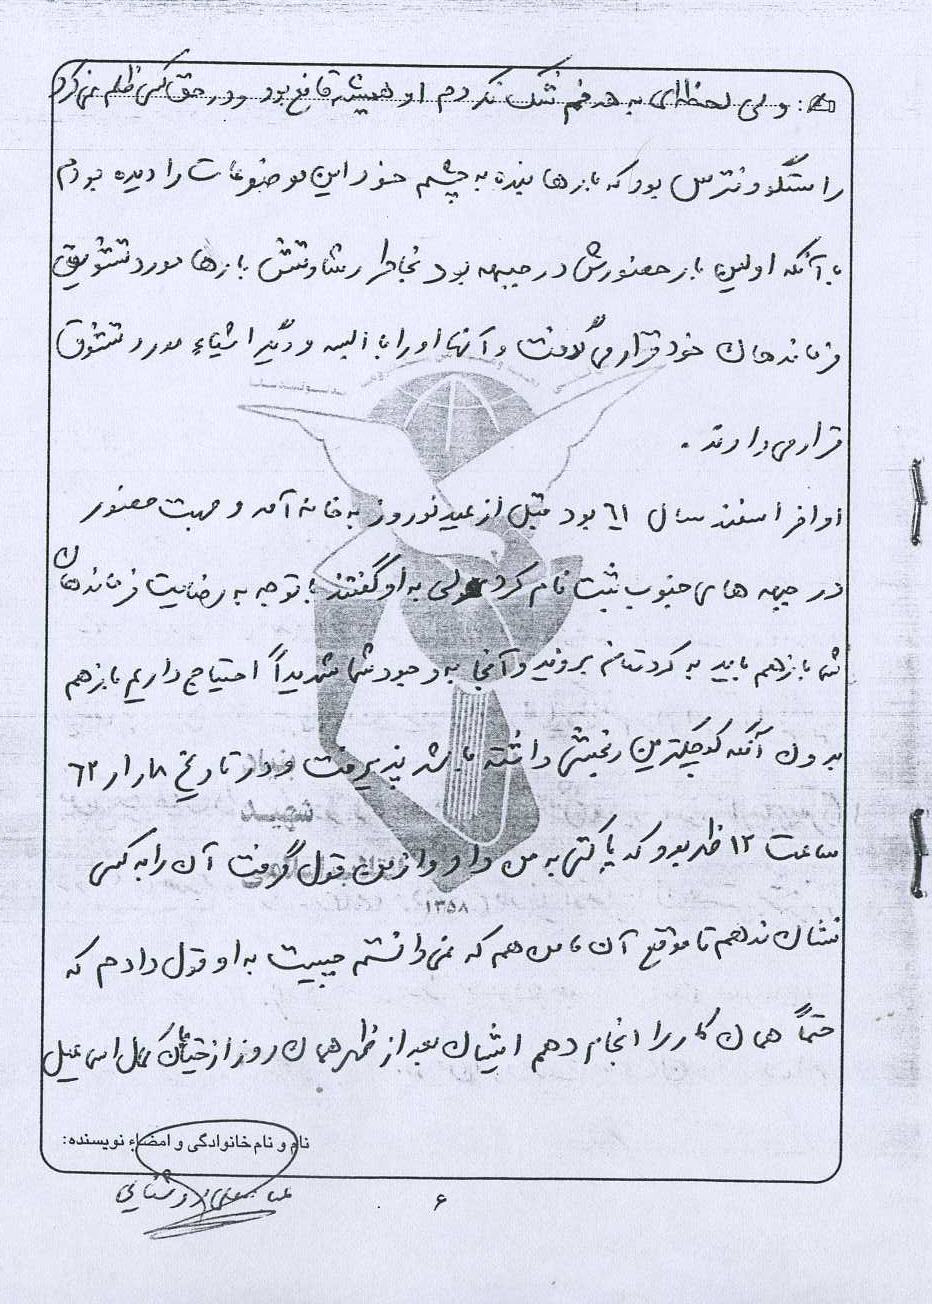 ولی لحظه‌ای به هدفم شک نکردم او همیشه قانع بود و در حق کسی ظلم نمی‌کرد
راستگو و نترس بود که بارها بنده به چشم خود این موضوعات را دیده بودم
با آنکه اولین بار حضورش در جبهه بود بخاطر رشادتش بارها مورد تشویق
فرماندهان خود قرار می‌گرفت و آنها او را با البسه و دیگر اشیاء مورد تشوق
قرار می‌دادند .
اواخر اسفند سال ٦١ بود قبل از عید نوروز به خانه آمد و جهت حضور
در جبهه های جنوب ثبت نام کرد ولی به او گفتند با توجه به رضایت فرماندهان
شما باز هم باید به کردستان بروید و آنجا به وجود شما شدیداً احتیاج داریم باز هم
بدون آنکه کوچکترین رنجشی داشته باشد پذیرفت و در تاریخ ١/٨/ ٦٢
ساعت ١٢ ظهر بود که پاکتی به من داد و از من قول گرفت آن را به کسی
نشان ندهم تا موقع آن ما من هم که نمی‌دانستم چیست به او قول دادم که
حتماً همان کار را انجام دهم ایشان بعد از ظهر همان روز از خیابان اسماعیل
۱۳۵۸
نام و نام خانوادگی و امضاء نویسنده:
۶